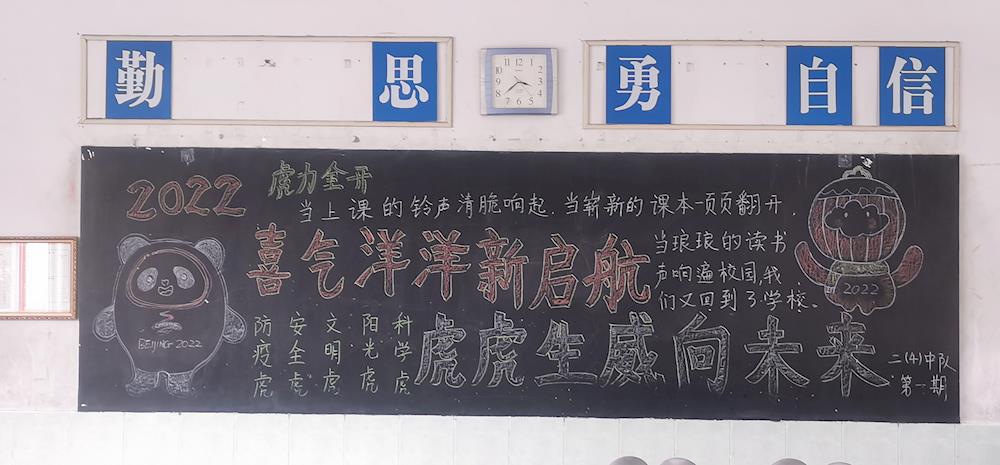 勤 思 勇 自 信
12 1 2 3 4 5 6 7 8 9 10 11
2022
虎力全开
当上课的铃声清脆响起，当崭新的课本一页页翻开，
喜气洋洋新启航
当琅琅的读书
声响遍校园，我
们又回到了学校。
2022
BEIJING 2022
防疫虎
安全虎
文明虎
阳光虎
科学虎
虎虎生威向未来
二(4)中队
第一期